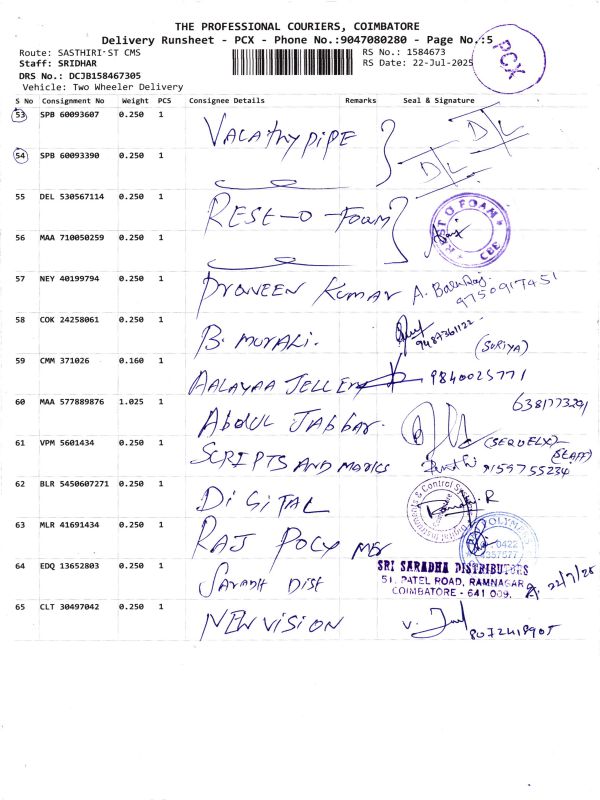 THE PROFESSIONAL COURIERS, COIMBATORE
Delivery Runsheet - PCX - Phone No.:9047080280 - Page No.:5
Route: SASTHIRI-ST CMS
RS No.: 1584673
Staff: SRIDHAR
RS Date: 22-Jul-2025
PCX
DRS No.: DCJB158467305
Vehicle: Two Wheeler Delivery
S No Consignment No Weight PCS Consignee Details Remarks Seal & Signature
53 SPB 60093607 0.250 1 Valathy pipe D/L
54 SPB 60093390 0.250 1 D/L
55 DEL 530567114 0.250 1 REST-O-Foam
REST O FOAM CBE
56 MAA 710050259 0.250 1
57 NEY 40199794 0.250 1 PRAVEEN KUMAR A. BalaRaj.
9750917451
58 COK 24258061 0.250 1 B. MURALI.
9487361122
(SURIYA)
59 CMM 371026 0.160 1 AALAYAA JELLERY 9840025771
60 MAA 577889876 1.025 1 Abdul Jabbar. 6381773291
61 VPM 5601434 0.250 1 SCRIPTS AND MARKS (SEQUELX) (STAFF)
9159755234
62 BLR 5450607271 0.250 1 DIGITAL
63 MLR 41691434 0.250 1 RAJ POLY
OLYMPUS 0422
64 EDQ 13652803 0.250 1 Saradh Dist
SRI SARADHA DISTRIBUTORS
51, PATEL ROAD, RAMNAGAR
COIMBATORE - 641 009.
22/7/25
65 CLT 30497042 0.250 1 NEW VISION V.
8072418905